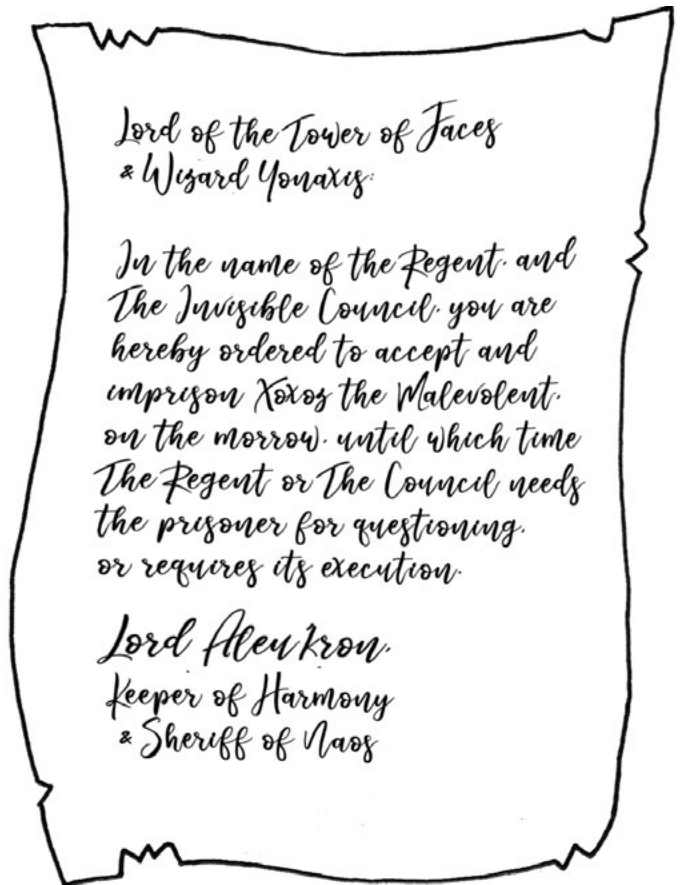 Lord of the Tower of Faces
& Wizard Yonaxis:
In the name of the Regent, and
The Invisible Council, you are
hereby ordered to accept and
imprison Xoxoz the Malevolent,
on the morrow, until which time
The Regent or The Council needs
the prisoner for questioning,
or requires its execution.
Lord Aleu Kron,
Keeper of Harmony
& Sheriff of Naos